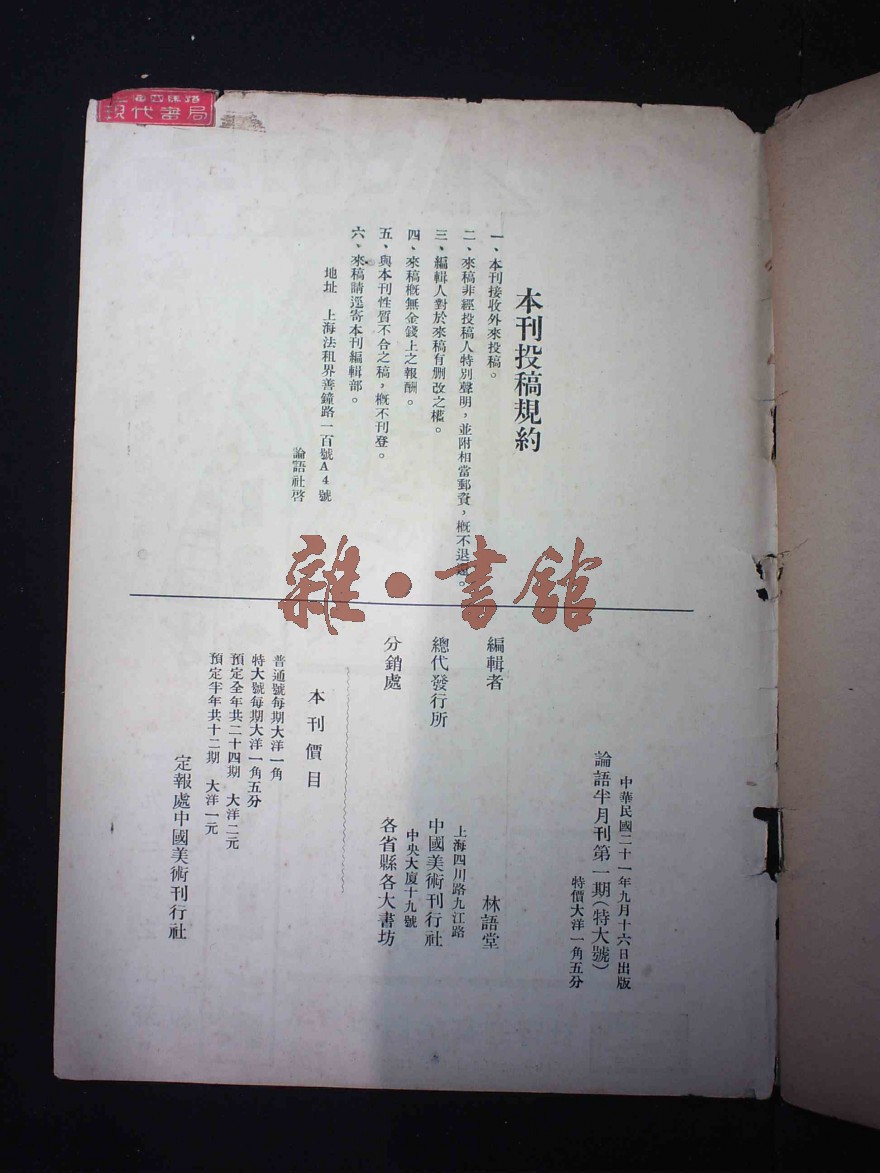 現代書局
本刊投稿規約
一、本刊接收外來投稿。
二、來稿非經投稿人特別聲明，並附相當郵資，概不退還。
三、編輯人對於來稿有刪改之權。
四、來稿概無金錢上之報酬。
五、與本刊性質不合之稿，概不刊登。
六、來稿請逕寄本刊編輯部。
地址　上海法租界善鐘路一百號A4號
論語社啓
雜·書館
中華民國二十一年九月十六日出版
論語半月刊第一期(特大號)
特價大洋一角五分
編輯者　林語堂
上海四川路九江路
總代發行所　中國美術刊行社
中央大廈十九號
分銷處　各省縣各大書坊
本刊價目
普通號每期大洋一角
特大號每期大洋一角五分
預定全年共二十四期　大洋二元
預定半年共十二期　大洋一元
定報處中國美術刊行社